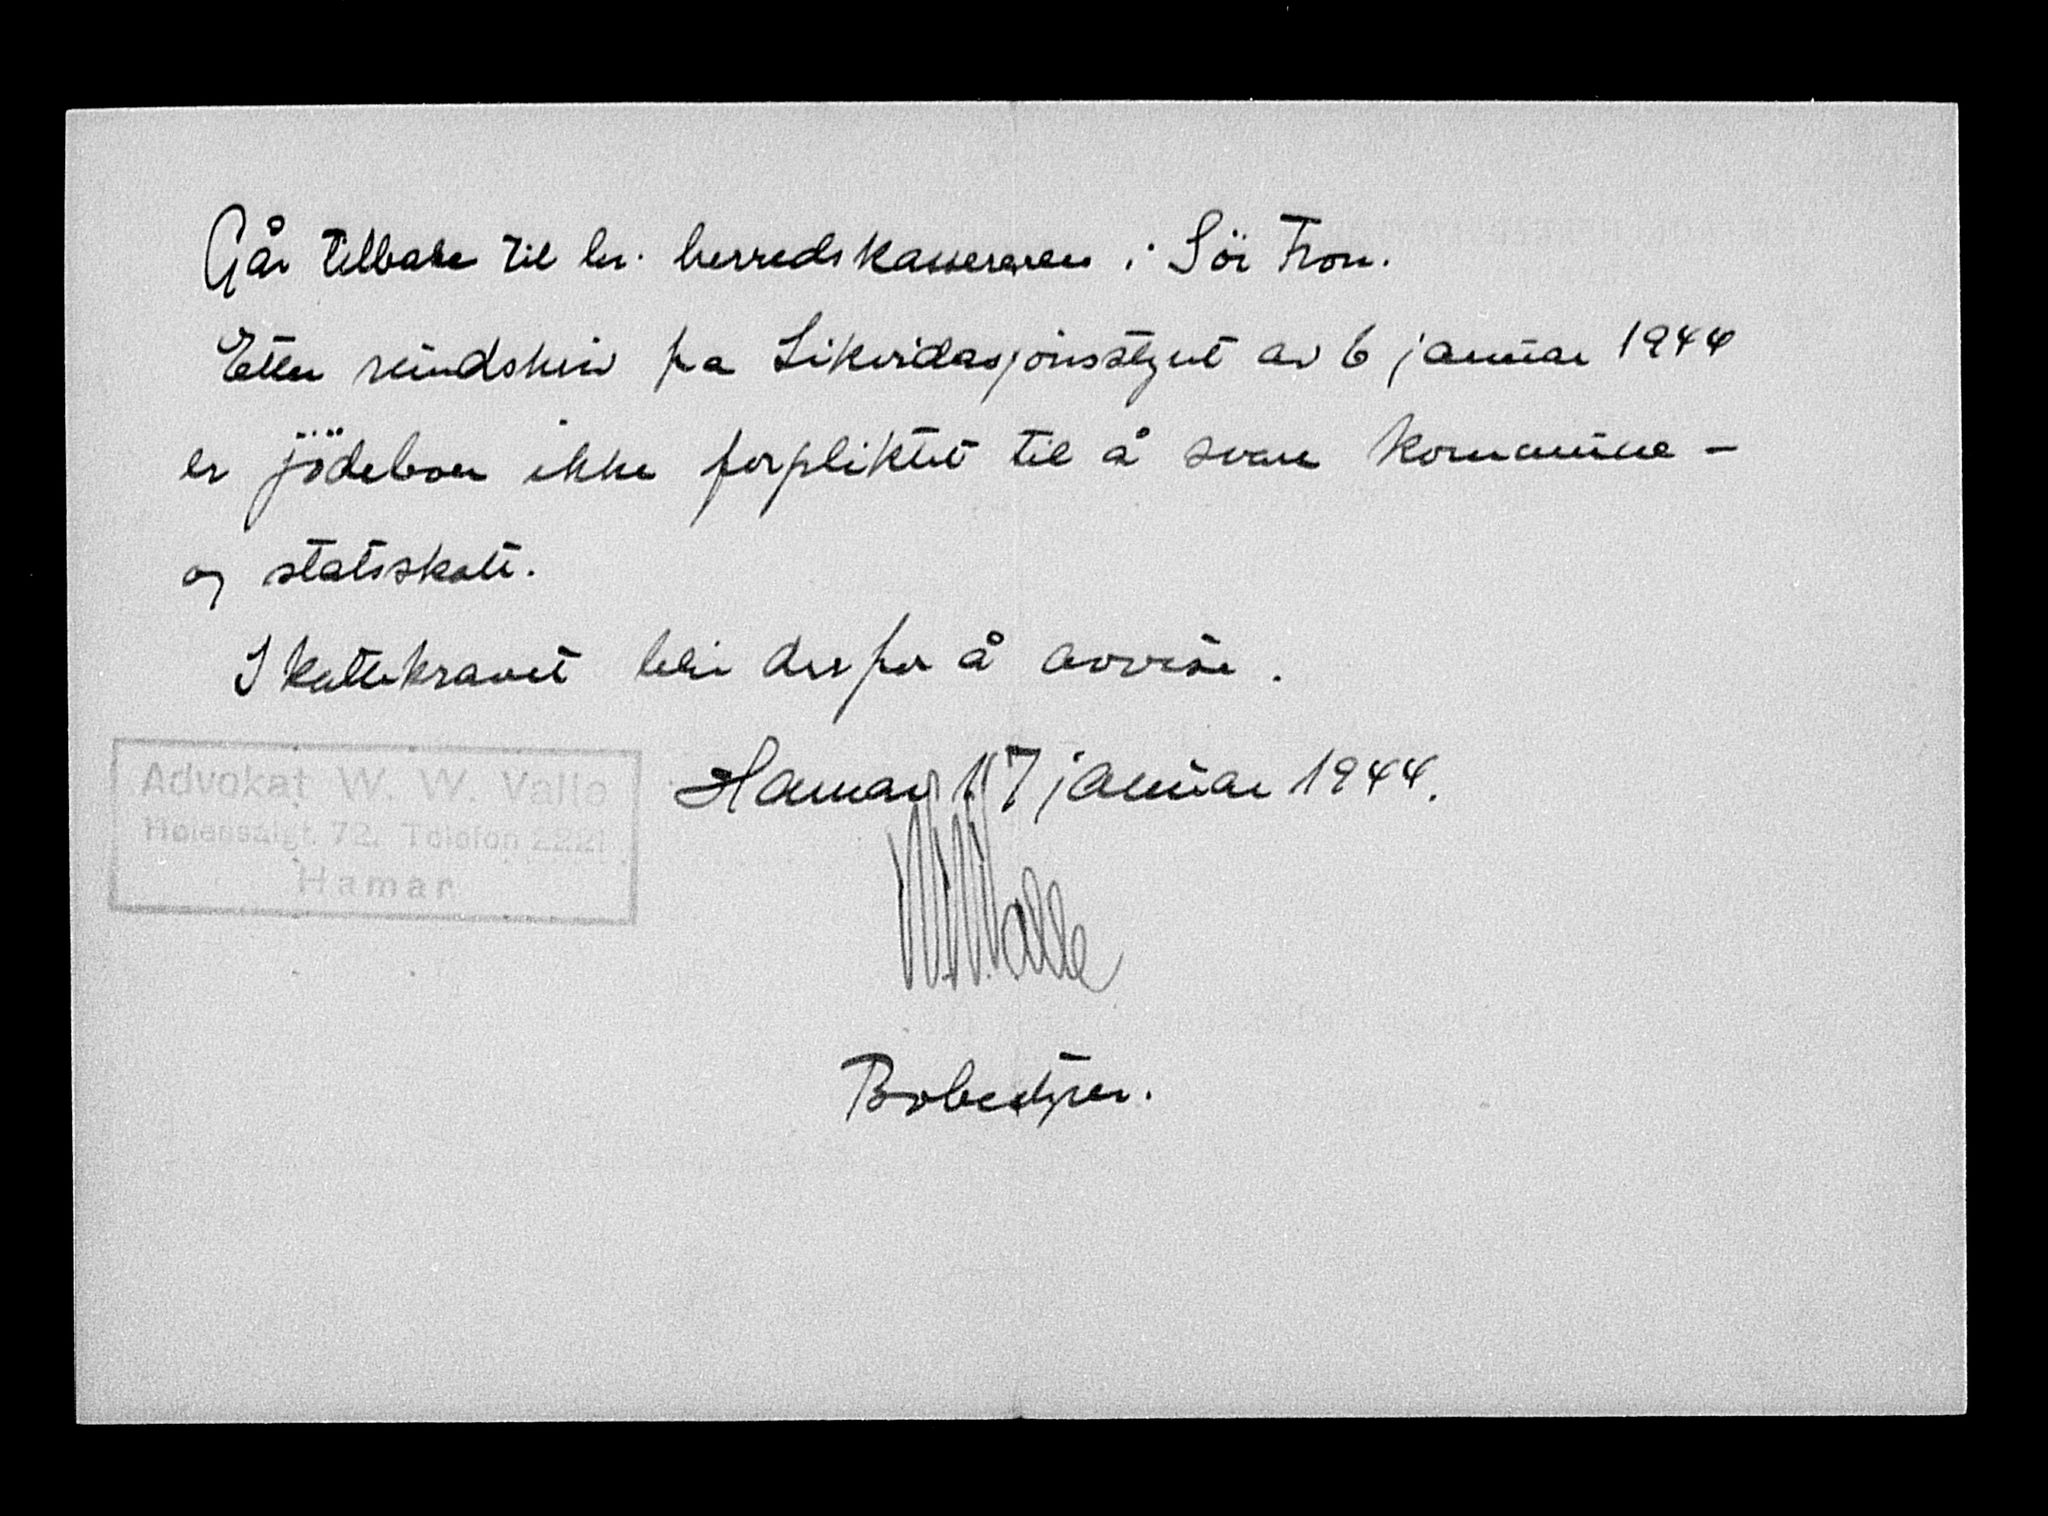 Går tilbake til hr. herredskassereren i Sör Fron.
Etter rundskriv fra Likvidasjonsstyret av 6 januar 1944
er jödeboer ikke forpliktet til å svare kommune-
og statsskatt.
Skattekravet blir derfor å avvise.
Hamar 17 januar 1944.
W.W. Valle
Bobestyrer.
Advokat W. W. Valle
72. Telefon 2221
Hamar